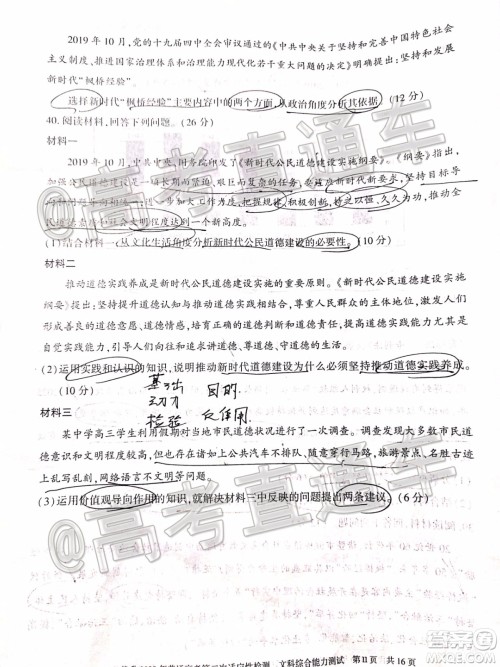 2019年10月，党的十九届四中全会审议通过的《中共中央关于坚持和完善中国特色社会
主义制度、推进国家治理体系和治理能力现代化若干重大问题的决定》明确提出：坚持和发展
新时代“枫桥经验”。
选择新时代“枫桥经验”主要内容中的两个方面，从政治角度分析其依据。(12分)
40. 阅读材料，回答下列问题。(26分)
材料一
2019年10月，中共中央、国务院印发了《新时代公民道德建设实施纲要》。《纲要》指出，
加强公民道德建设是一项长期而紧迫、艰巨而复杂的任务，要适应新时代新要求，坚持目标导
向和问题导向相统一，进一步加大工作力度，把握规律、积极创新，持之以恒、久久为功，推动全
民道德素质和社会文明程度达到一个新高度。
(1)结合材料一，从文化生活角度分析新时代公民道德建设的必要性。(10分)
材料二
推动道德实践养成是新时代公民道德建设实施的重要原则。《新时代公民道德建设实施
纲要》提出：坚持提升道德认知与推动道德实践相结合，尊重人民群众的主体地位，激发人们
形成善良的道德意愿、道德情感，培育正确的道德判断和道德责任，提高道德实践能力尤其是
自觉实践能力，引导人们向往和追求讲道德、尊道德、守道德的生活。
(2)运用实践和认识的知识，说明推动新时代道德建设为什么必须坚持推动道德实践养成。
(10分)
基础 目的
动力 反作用
检验
材料三
某中学高三学生利用假期对当地市民道德状况进行了一次调查。调查中发现大多数市民道
德意识和文明意识大大增强，但也存在着诸如上公共汽车不排队、随意穿行马路，旅游景点、名胜古迹
上乱写乱刻，网络语言不文明等现象。
(3)运用价值观导向作用的知识，就解决材料三中反映的问题提出两条建议。(6分)
@高考直通车
@高考直通车
文科综合能力测试 第11页 共16页